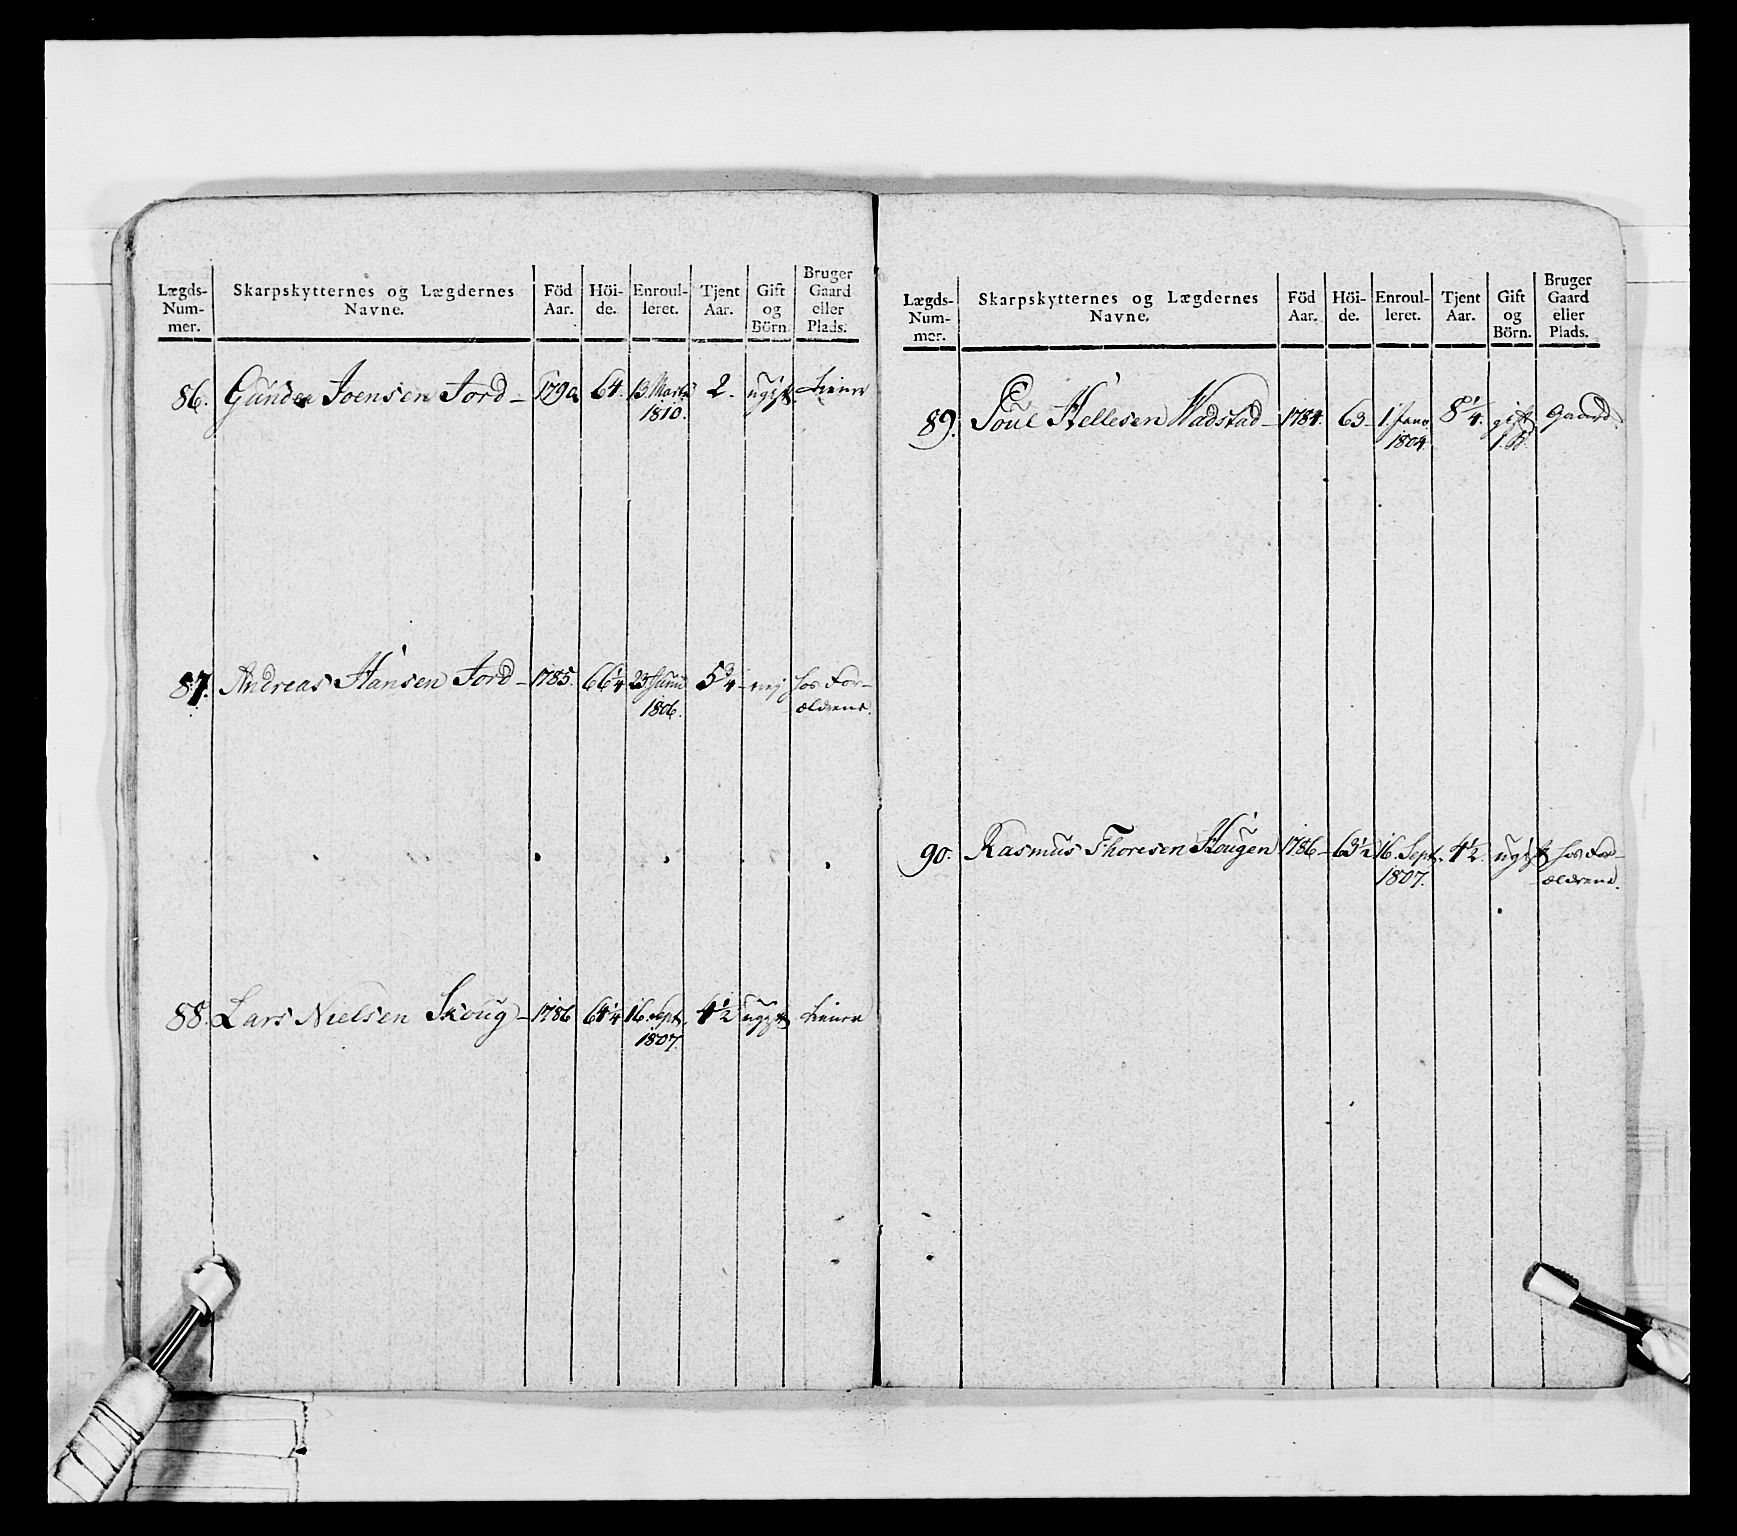 Lægds-Num-mer. Skarpskytternes og Lægdernes Navne. Föd Aar. Höi-de. Enroul-leret. Tjent Aar. Gift og Börn. Bruger Gaard eller Plads.
86. Gunder Joensen Jord – 1790 64. 13 Marts 2. ugift. tiener
1810.
87. Andreas Hansen Jord – 1785. 66¼ 23 Junii 5¾ – nej hos For-
1806. ældrene.
88. Lars Nielsen Skoug – 1786 64¼ 16. Sept. 4½ ugift tiener
1807.
Lægds-Num-mer. Skarpskytternes og Lægdernes Navne. Föd Aar. Höi-de. Enroul-leret. Tjent Aar. Gift og Börn. Bruger Gaard eller Plads.
89. Poul Hellesen Wadstad – 1784. 63 – 1. Janv 8¼. gift Gaard.
1804. 1. B.
90. Rasmus Thoresen Hougen 1786 – 63½ 16. Sept. 4½. ugift hos For-
1807. ældrene.